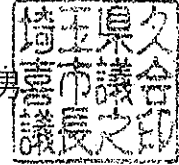 埼玉県久
喜市議会
議長之印
男